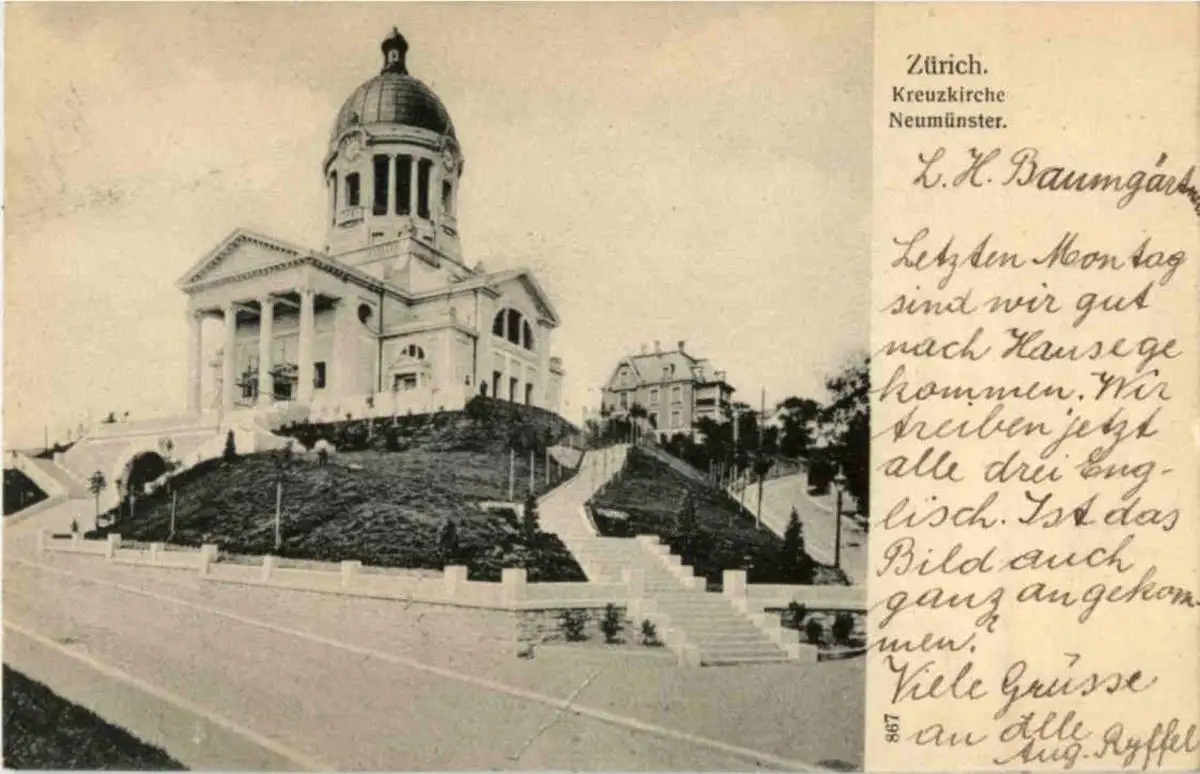 Zürich.
Kreuzkirche
Neumünster.
L. H. Baumgärtner
Letzten Montag
sind wir gut
nach Hause ge
kommen. Wir
treiben jetzt
alle drei Eng-
lisch. Ist das
Bild auch
ganz angekom-
men?
Viele Grüsse
an alle
Aug. Ryffel
867